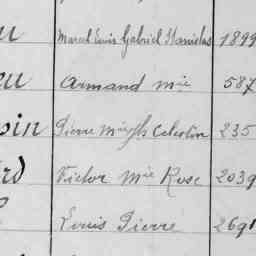 u Marcel Louis Gabriel Stanislas 1899
eu Armand Mie 587
pin Pierre Celestin 235
rd Victor Mie Rose 2039
Louis Pierre 2691